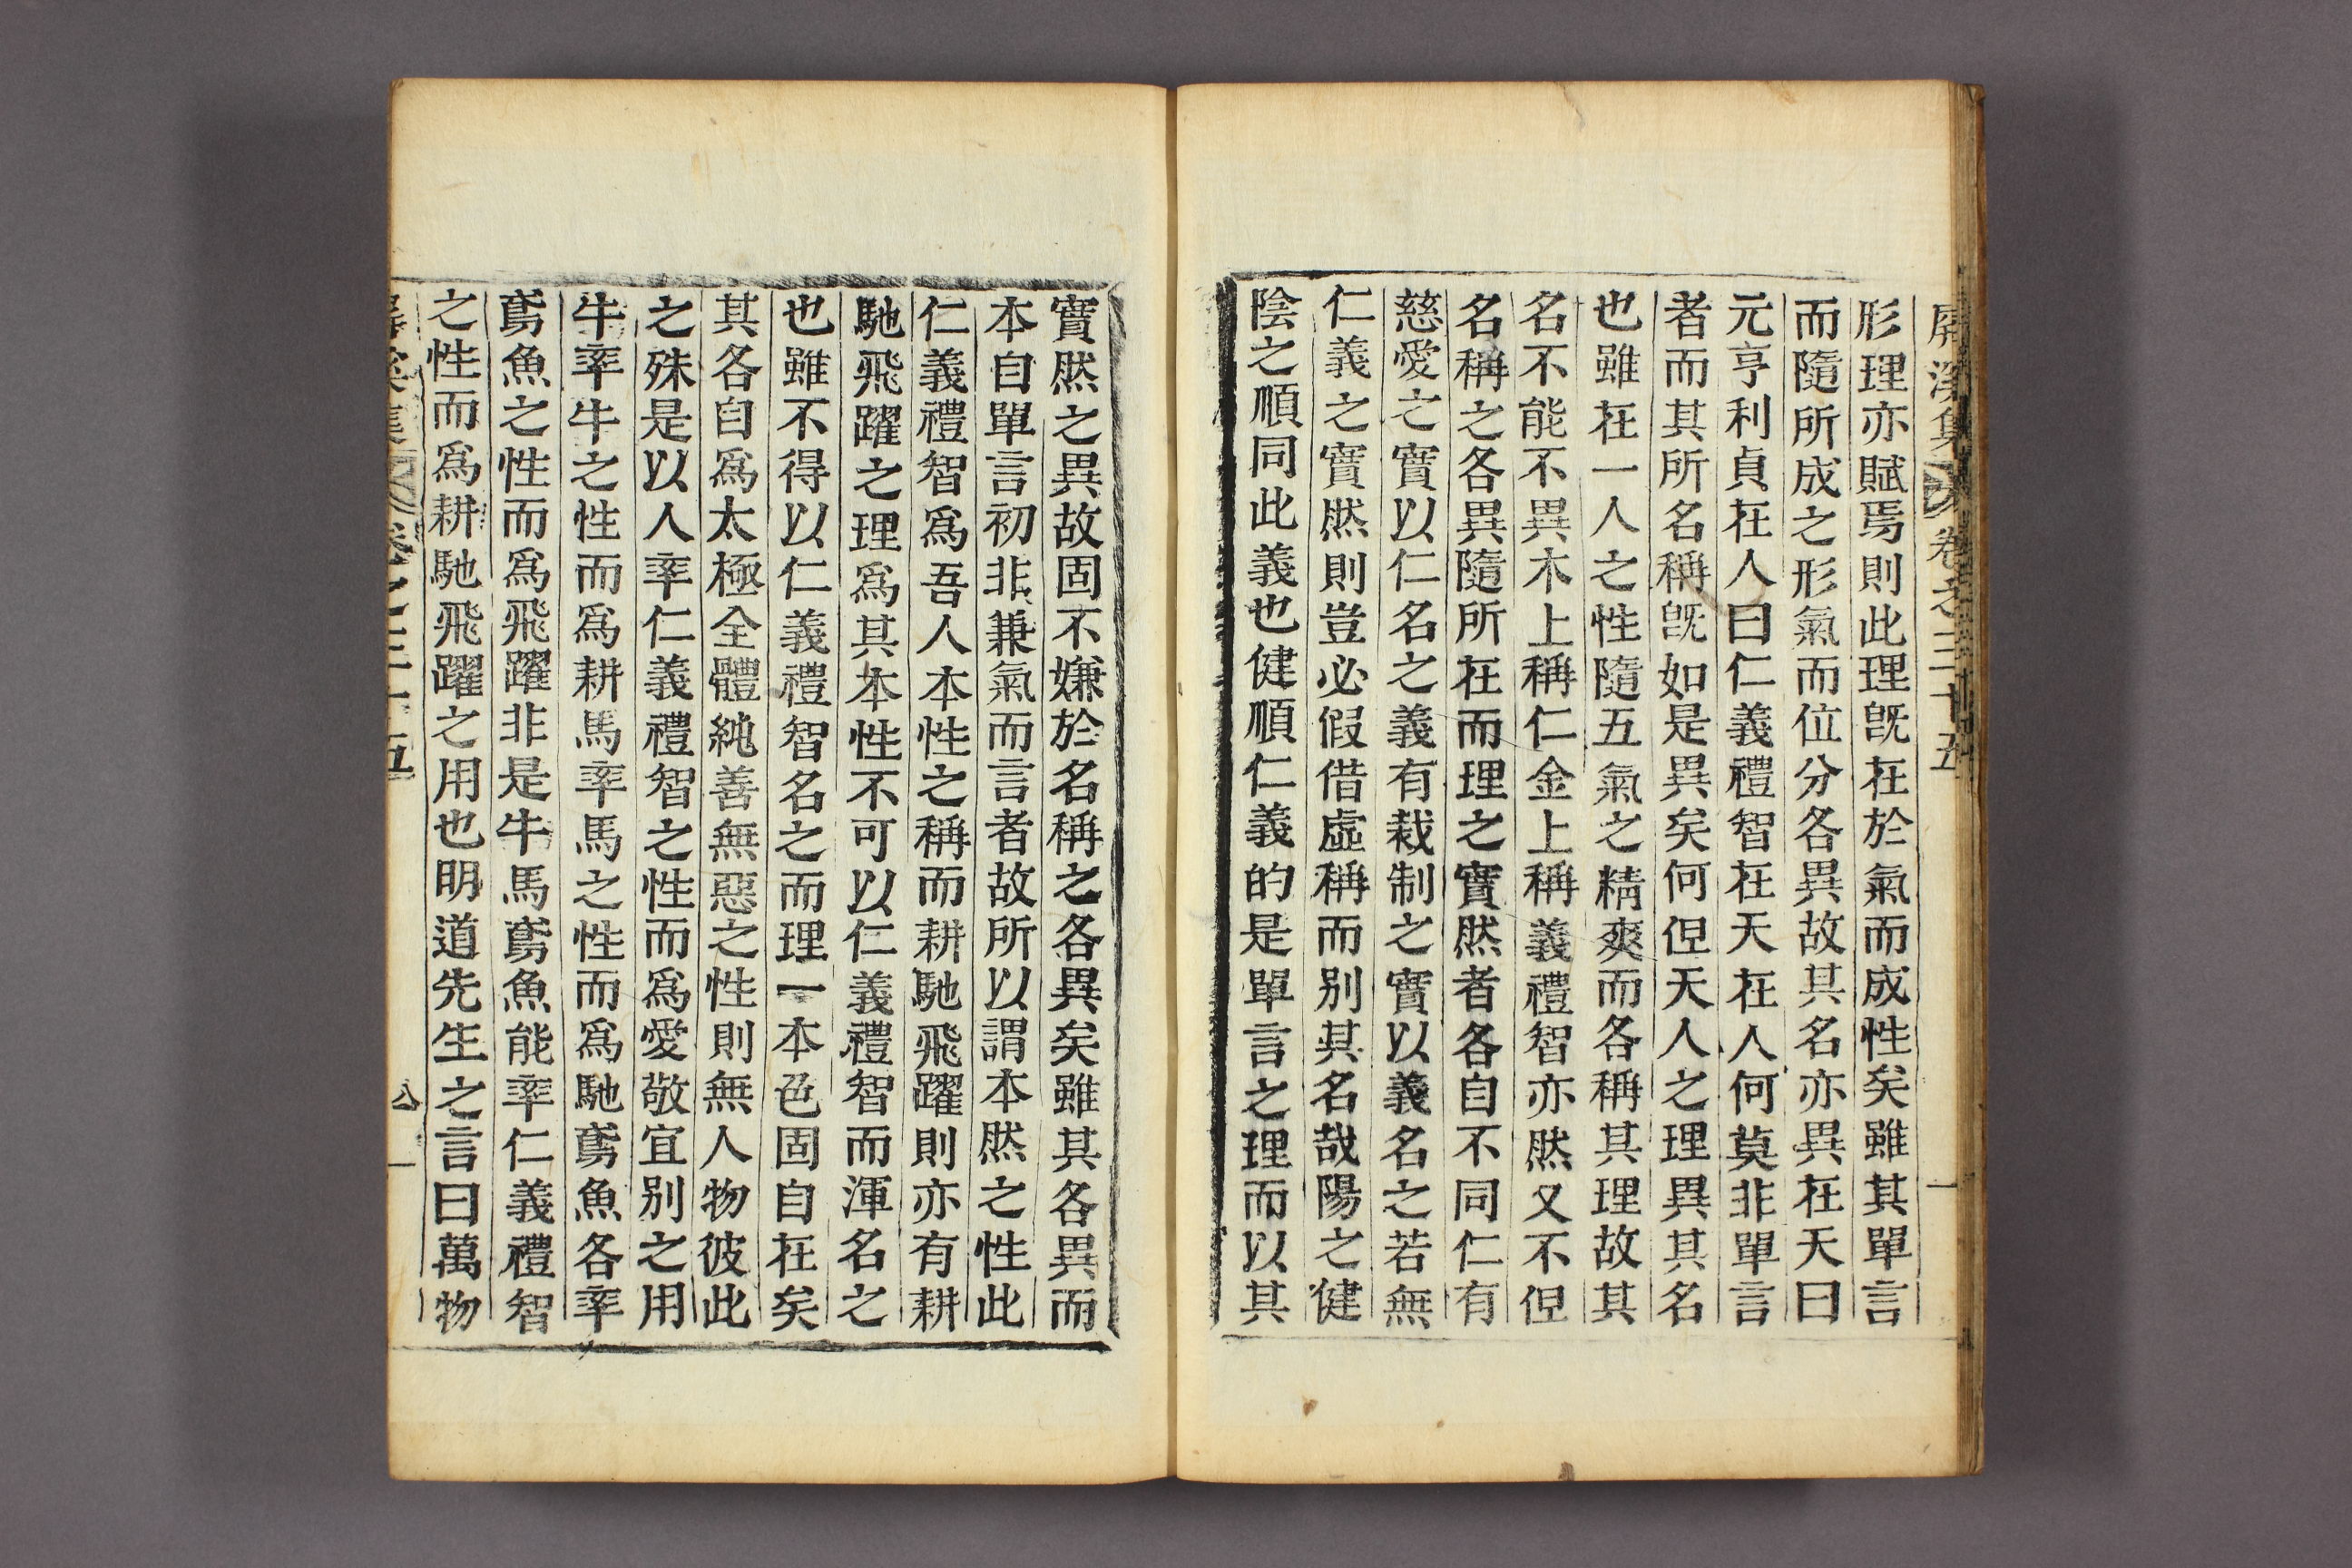 屏溪集 卷之三十五
形理亦賦焉則此理旣在於氣而成性矣雖其單言
而隨所成之形氣而位分各異故其名亦異在天曰
元亨利貞在人曰仁義禮智在天在人何莫非單言
者而其所名稱旣如是異矣何但天人之理異其名
也雖在一人之性隨五氣之精爽而各稱其理故其
名不能不異木上稱仁金上稱義禮智亦然又不但
名稱之各異隨所在而理之實然者各自不同仁有
慈愛之實以仁名之義有裁制之實以義名之若無
仁義之實然則豈必假借虛稱而別其名哉陽之健
陰之順同此義也健順仁義的是單言之理而以其
實然之異故固不嫌於名稱之各異矣雖其各異而
本自單言初非兼氣而言者故所以謂本然之性此
仁義禮智爲吾人本性之稱而耕馳飛躍則亦有耕
馳飛躍之理爲其本性不可以仁義禮智而渾名之
也雖不得以仁義禮智名之而理一本色固自在矣
其各自爲太極全體純善無惡之性則無人物彼此
之殊是以人率仁義禮智之性而爲愛敬宜別之用
牛率牛之性而爲耕馬率馬之性而爲馳鳶魚各率
鳶魚之性而爲飛躍非是牛馬鳶魚能率仁義禮智
之性而爲耕馳飛躍之用也明道先生之言曰萬物
卷之三十五 八